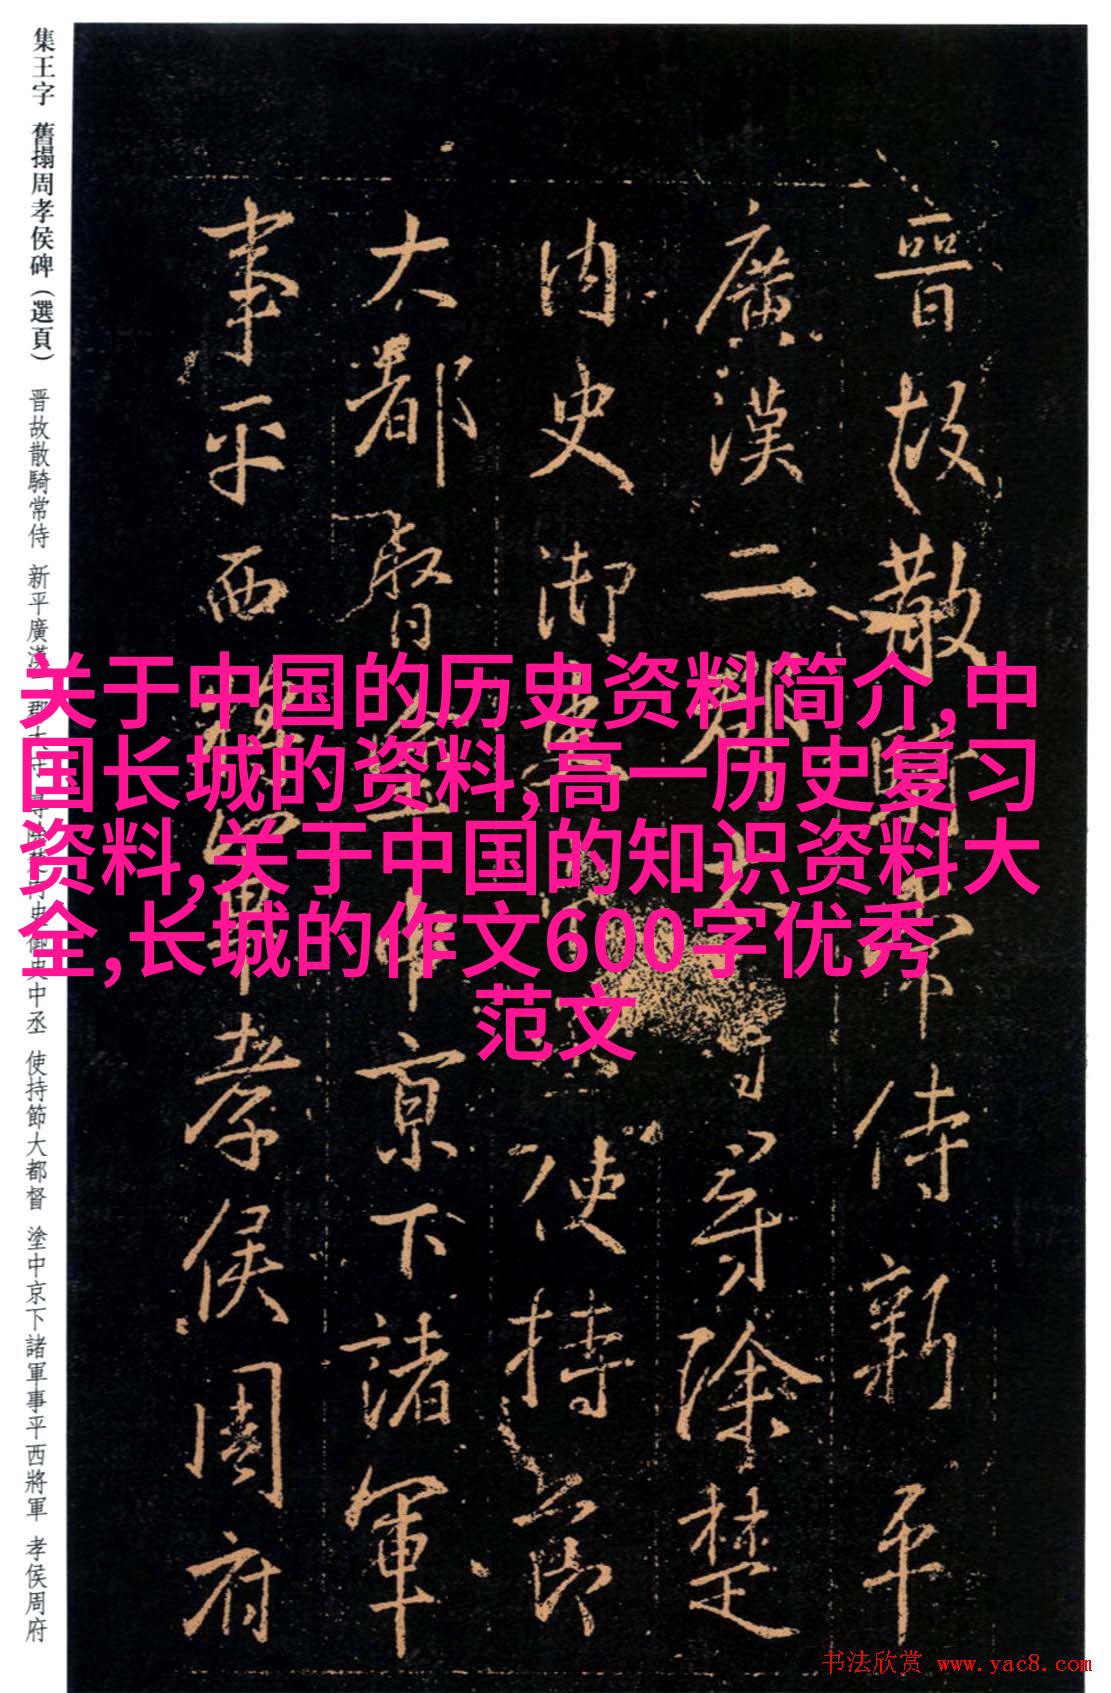 集王字 舊搨周孝侯碑（選頁） 晋故散騎常侍 新平廣漢二郡太守 尋除楚内史御史中丞 使持節大都督 塗中京下諸軍事平西將軍 孝侯周府
晉故散騎常侍新平
廣漢二郡太守尋除楚
内史御史中丞使持節
大都督塗中京下諸軍
事平西將軍孝侯周府
关于中国的历史资料简介,中
国长城的资料,高一历史复习
资料,关于中国的知识资料大
全,长城的作文600字优秀
范文
书法欣赏 www.yac8.com